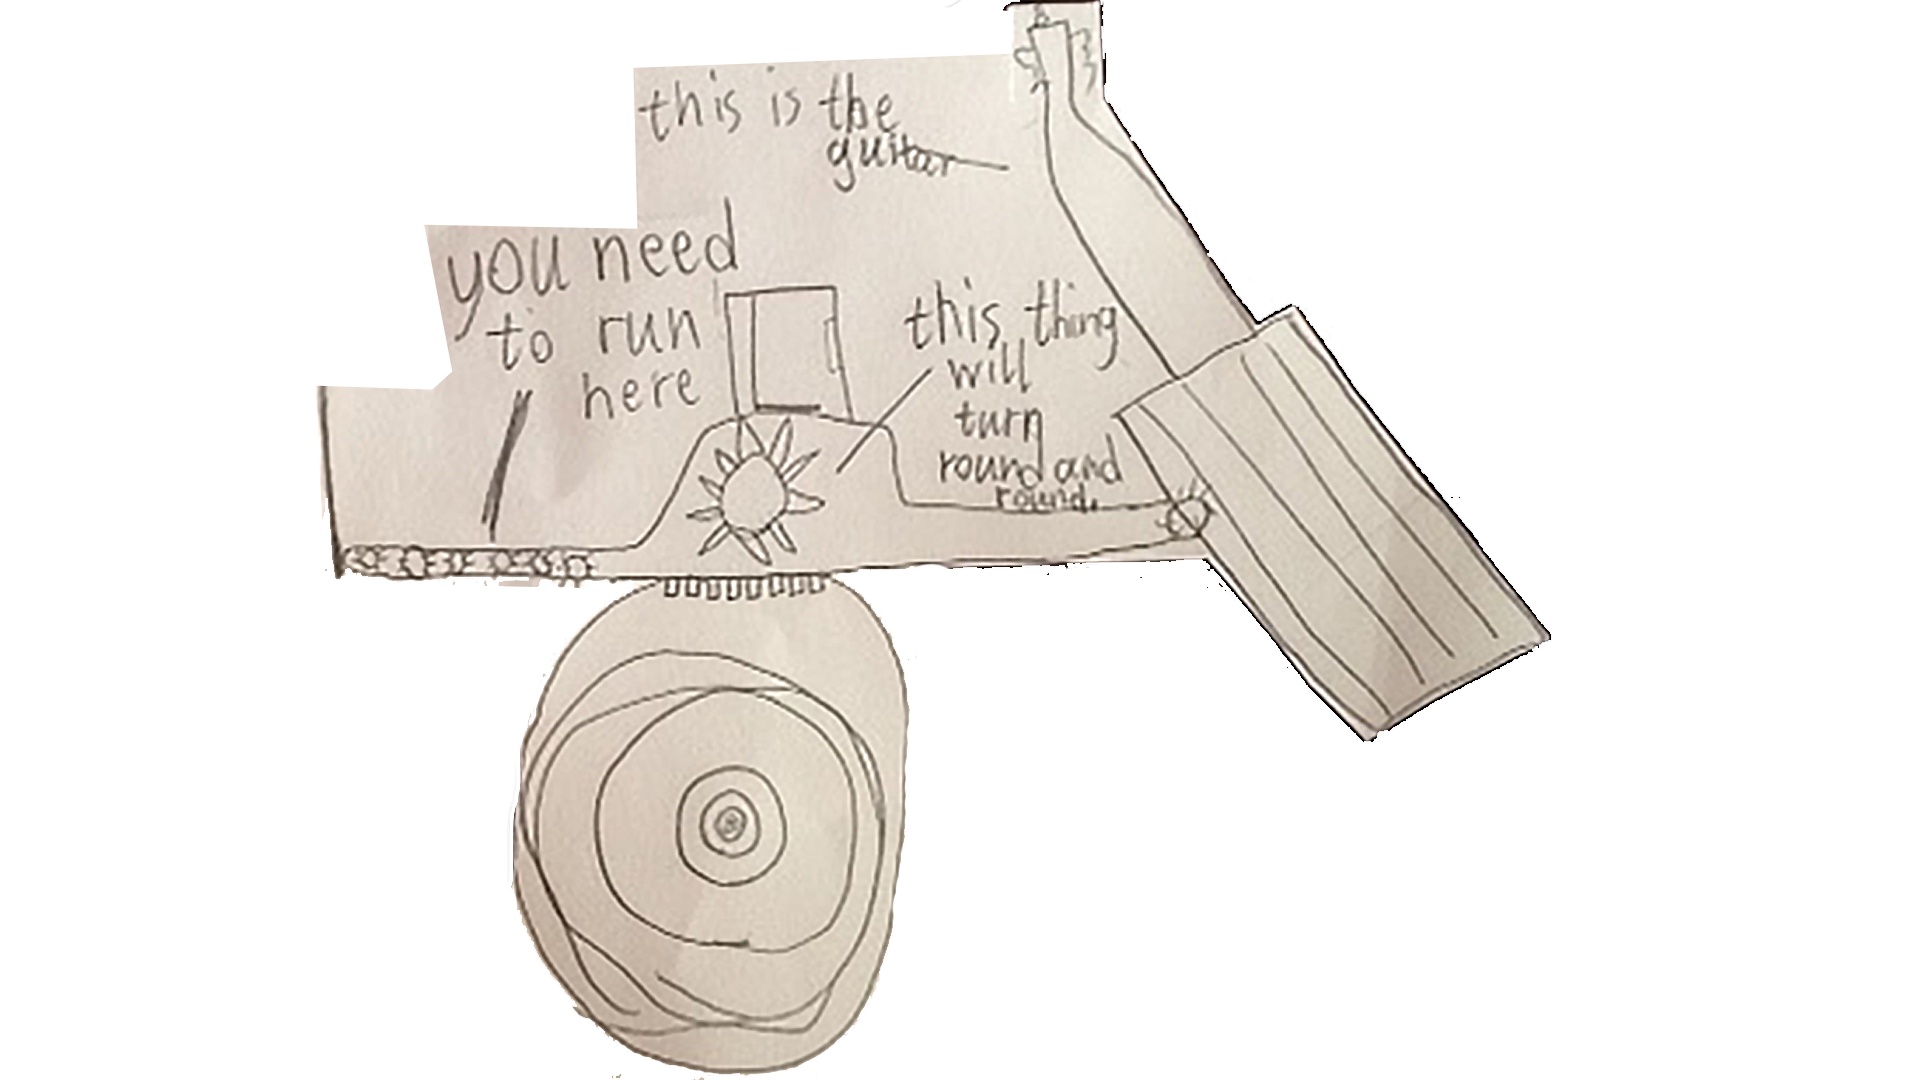 this is the
guitar
you need
to run
here
this thing
will
turn
round and
round.